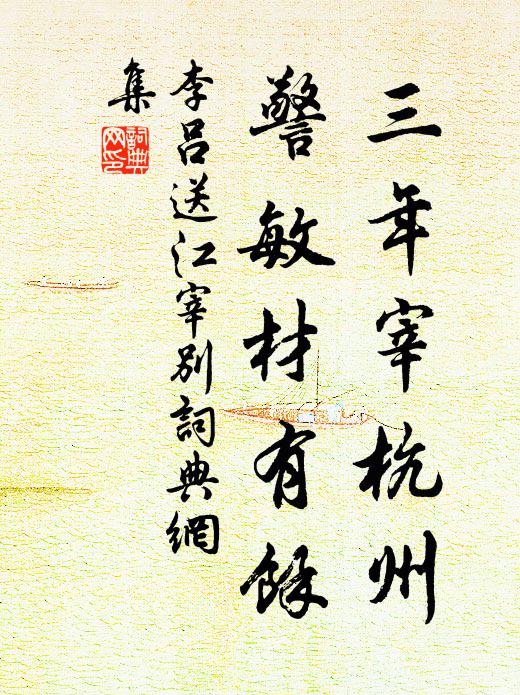 三年宰杭州
警敏材有餘
李呂送江宰別詞典網
集
詞典網印